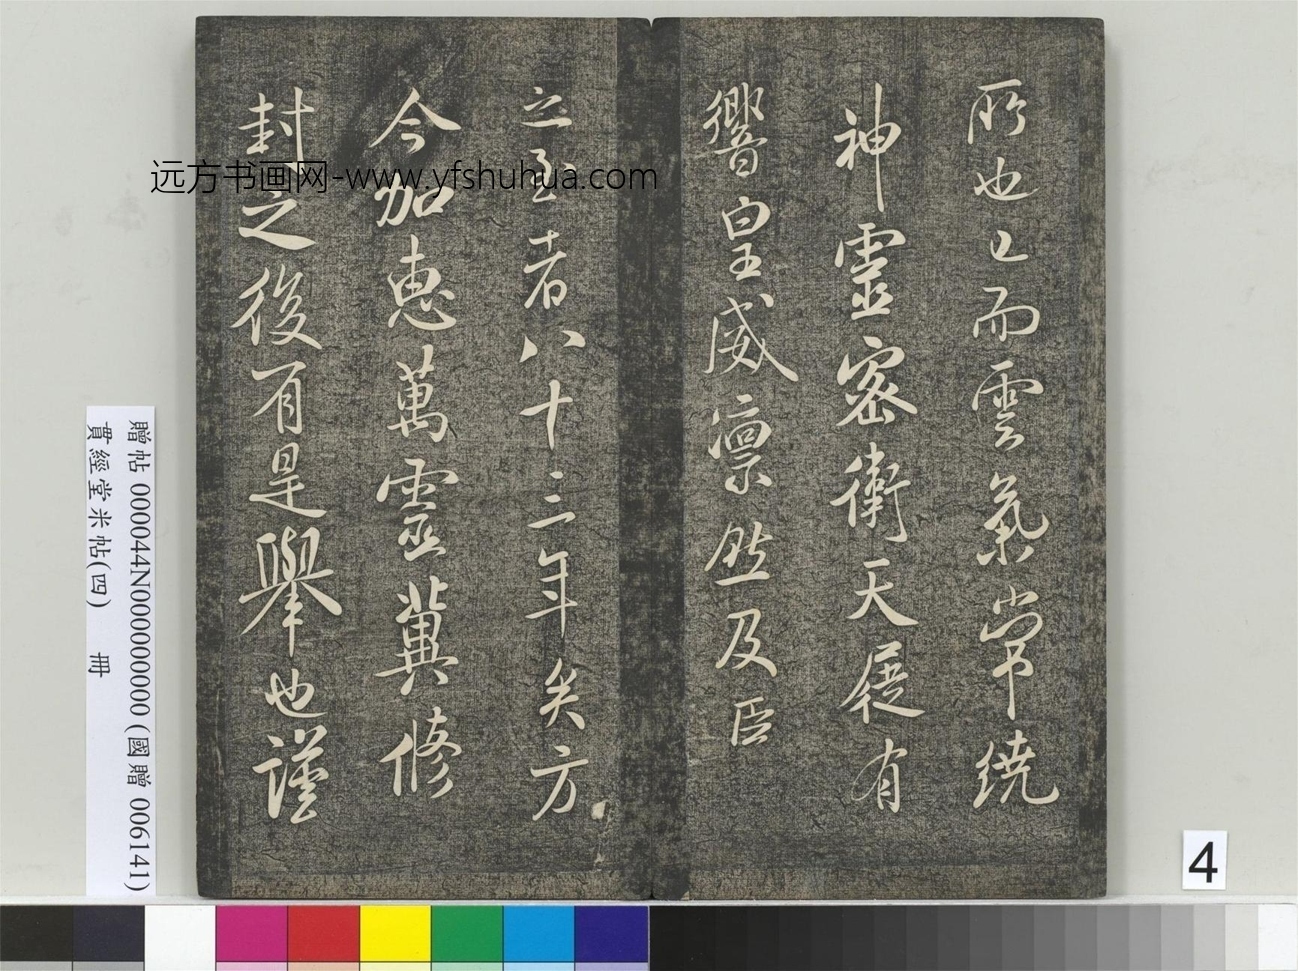 所也已而雲氣常繞
神靈密衛天展有
響皇威凛然及臣
之至者八十三年矣方
今加惠萬靈冀修
封之後有是舉也謹
远方书画网-www.yfshuhua.com
贈帖 000044N000000000 (國贈 006141)
貫經堂米帖(四) 冊
4